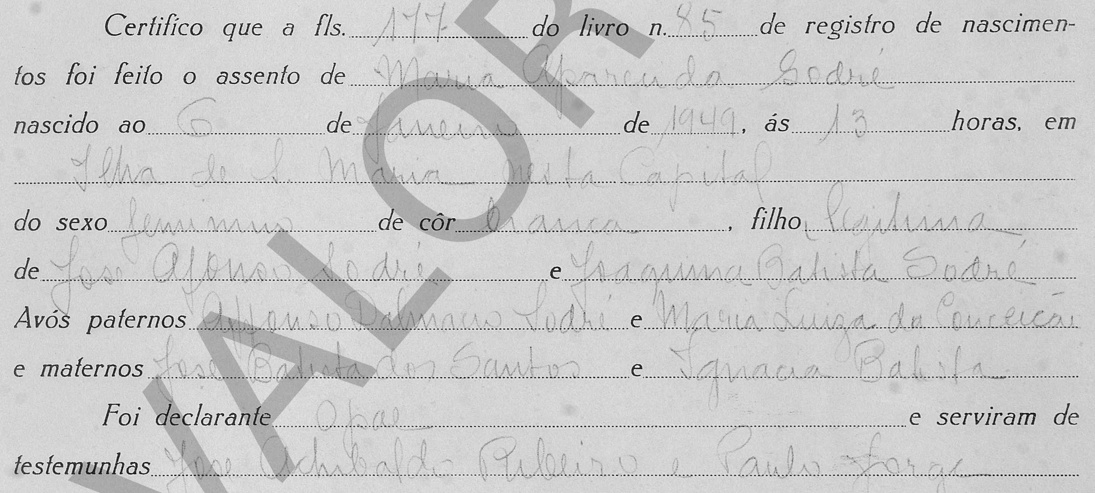 Certifico que a fls. 177 do livro n. 85 de registro de nascimen-
tos foi feito o assento de Maria Aparecida Sodré
nascido ao 6 de Janeiro de 1949, ás 13 horas, em
Ilha de S. Maria nesta Capital
do sexo feminino de côr branca, filho legitima
de Jose Afonso Sodré e Joaquina Batista Sodré
Avós paternos Affonso Dalmacio Sodré e Maria Luiza da Conceição
e maternos José Batista dos Santos e Ignacia Batista
Foi declarante O pae e serviram de
testemunhas Jose Ribeiro e Paulo Jorge
VALOR